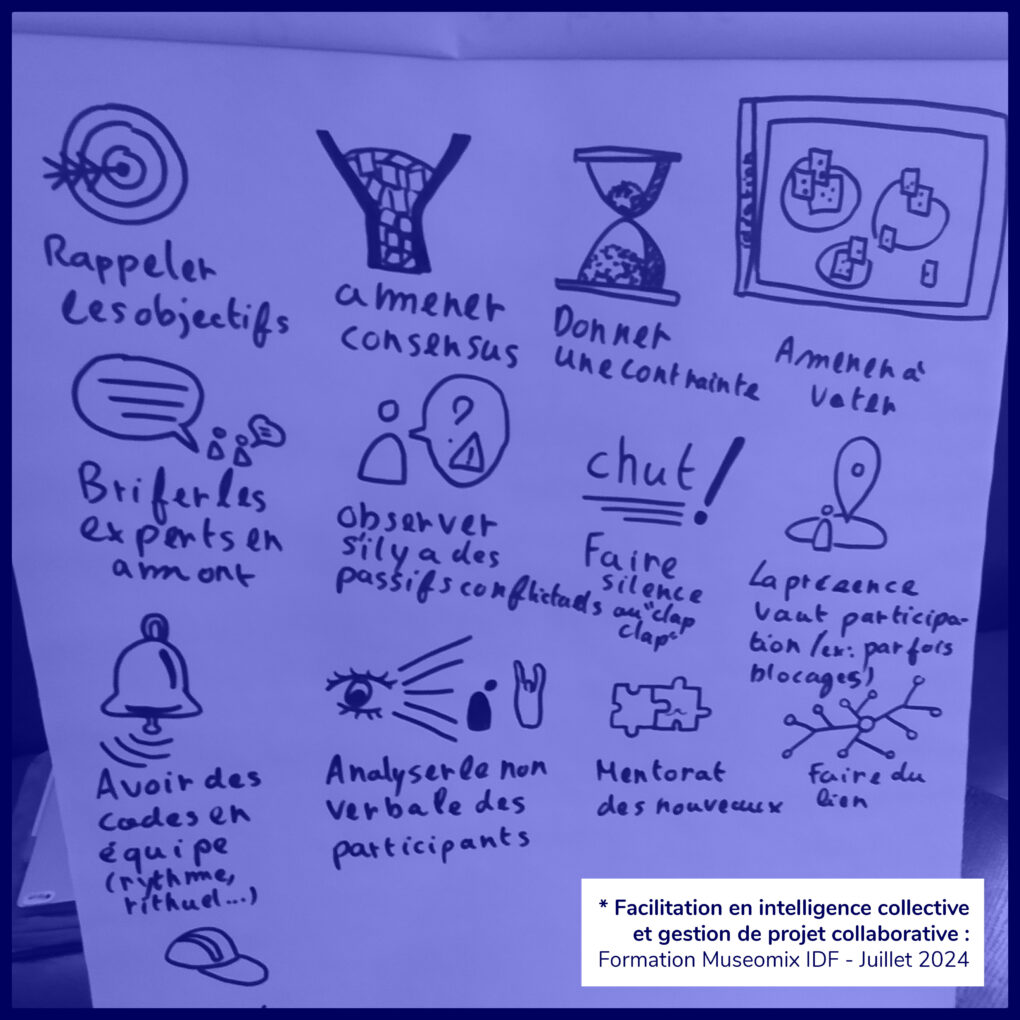 Rappeler
les objectifs
amener
consensus
Donner
une contrainte
idéation
Amener à
voter
Brifer les
experts en
amont
?
observer
s'il y a des
passifs conflictuels
chut !
Faire
silence
au "clap
clap"
La présence
vaut participa-
tion (ex: parfois
blocages)
Avoir des
codes en
équipe
(rythme,
rithuel...)
Analyser le non
verbale des
participants
Mentorat
des nouveaux
Faire du
lien
* Facilitation en intelligence collective
et gestion de projet collaborative :
Formation Museomix IDF - Juillet 2024